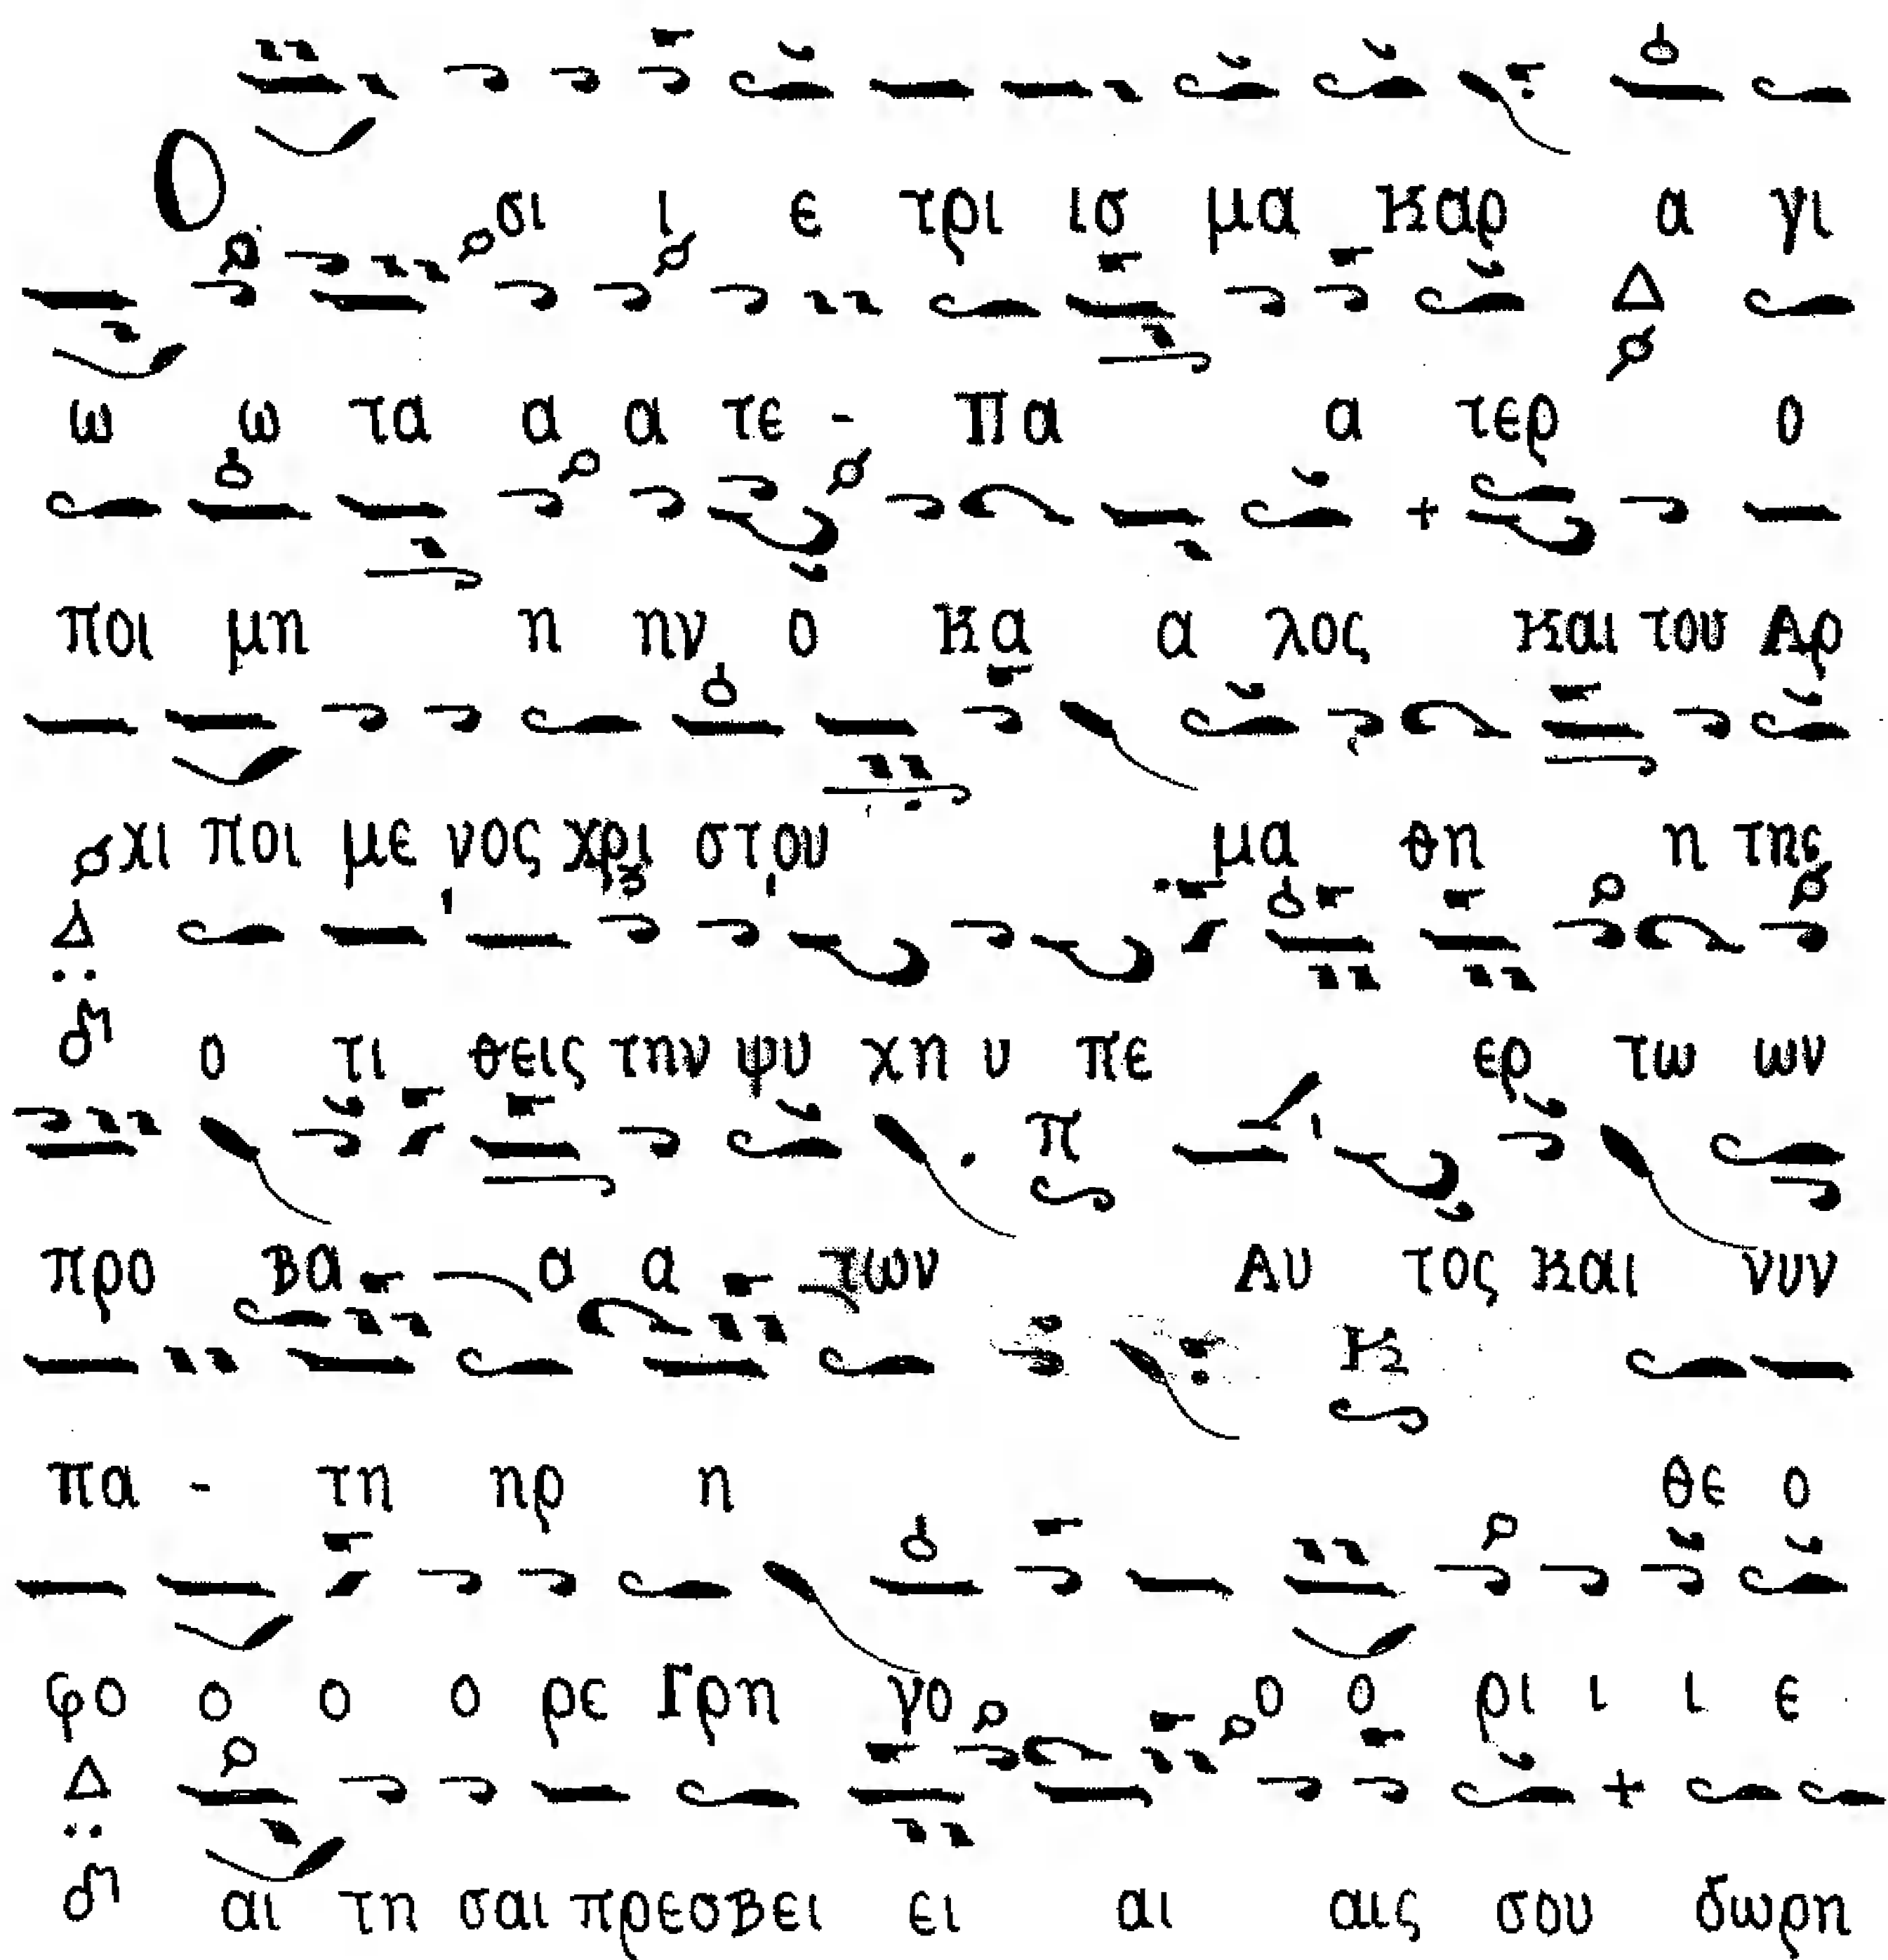 Ο σι ι ε τρι ισ μα καρ α γι
ω ω τα α α τε - Πα α τερ ο
ποι μη η ην ο κα α λος και του Αρ
χι ποι με νος χρι στου μα θη η της
Δ ο τι θεις την ψυ χη υ πε ερ τω ων
προ βα α α των π Αυ τος και νυν
πα - τη ηρ η κ θε ο
φο ο ο ο ρε Γρη γο ο ο ρι ι ι ε
Δ αι τη σαι πρεσβει ει αι αις σου δωρη